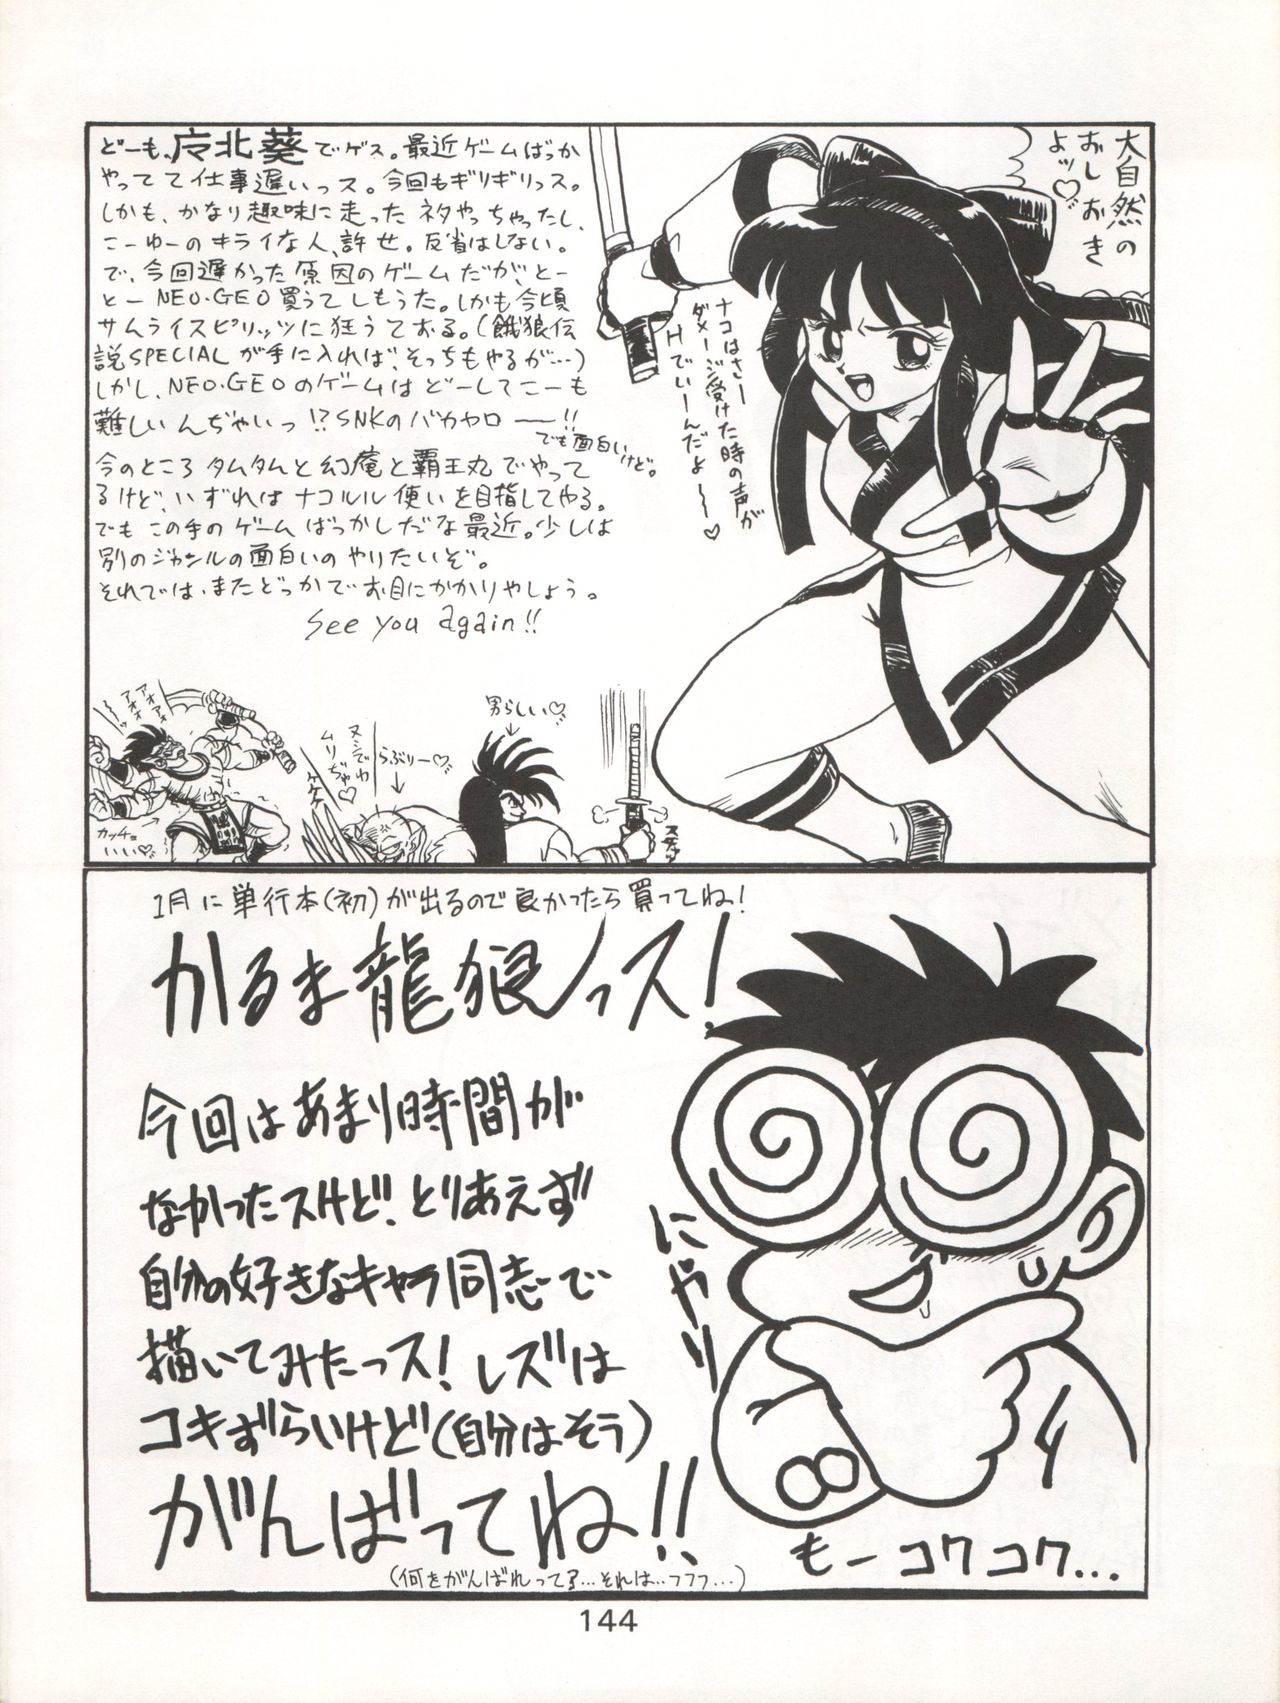 どーも、広北葵でゲス。最近ゲームばっか
やってて仕事遅いっス。今回もギリギリっス。
しかも、かなり趣味に走ったネタやっちゃったし、
こーゆーのキライな人、許せ。反省はしない。
で、今回遅かった原因のゲームだが、とー
とーNEO・GEO買うてしもうた。しかも今頃
サムライスピリッツに狂うておる。(餓狼伝
説SPECIALが手に入れば、そっちもやるが…)
しかし、NEO・GEOのゲームはどーしてこーも
難しいんぢゃいっ!?SNKのバカヤローー!!
でも面白いけど。
今のところタムタムと幻庵と覇王丸でやって
るけど、いずれはナコルル使いを目指してやる。
でもこの手のゲームばっかしだな最近。少しは
別のジャンルの面白いのやりたいぞ。
それでは、またどっかでお目にかかりやしょう。
See you again!!
大自然の
おしおき
よッ♡
ナコはさー
ダメージ受けた時の声が
Hでいーんだよ〜♡
アオアオ
カッチョ
いい♡
ヌシでわ
ムリぢゃ♡
ケケケ
らぶりー♡
男らしい♡
スチャッ
1月に単行本(初)が出るので良かったら買ってね!
かるま龍狼っス!
今回はあまり時間が
なかったスけど、とりあえず
自分の好きなキャラ同志で
描いてみたっス!レズは
コキずらいけど(自分はそう)
がんばってね!!
(何をがんばれって?…それは…フフフ…)
にやり
もーコワコワ…
144